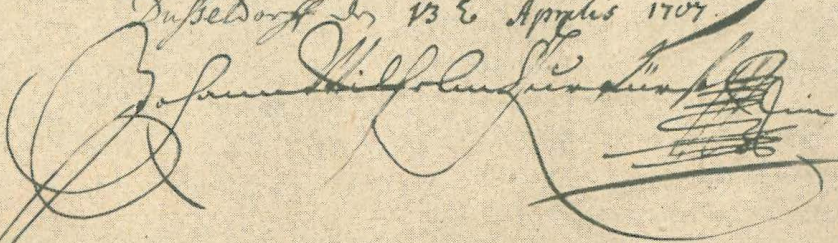 Düsseldorff den 13 t Apprlis 1707.
Johann Wilhelm Churfürst